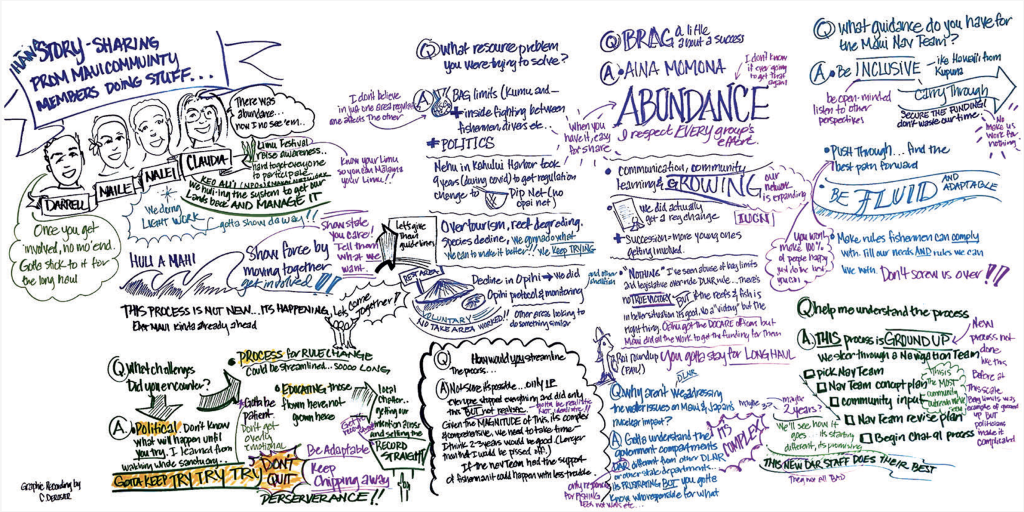 HĀNA STORY-SHARING
FROM MAUI COMMUNITY
MEMBERS DOING STUFF...
DARRELL
NAILE
NALEI
CLAUDIA
There was
abundance...
now I no see 'em...
Limu Festival
raise awareness...
hard to get everyone
to participate
we huli-ing the system to get our
Lands back AND MANAGE IT
We doing
LIGHT WORK
gotta show da way!!
Know your Limu
so you can Mālama
your Limu!!
Once you get
involved, no mo' end.
Gotta stick to it for
the long haul
HULI A MAHI
Show force by
moving together
get involved!!
Show state
you care!
Tell them
what we
want.
THIS PROCESS IS NOT NEW... ITS HAPPENING,
East Maui kinda already ahead
Let's
come
together!
Q What challenges
Did you encounter?
A Political. Don't know
what will happen until
you try. I learned from
watching whale sanctuary...
GOTTA KEEP TRY TRY TRY
DON'T
QUIT
PERSERVERANCE!!
PROCESS for RULE CHANGE
Could be streamlined... soooo LONG,
EDUCATING those
flown here, not
grown here
Gotta be
patient.
Don't get
overly
emotional
Be Adaptable
Keep
Chipping away
local
chatter...
getting our
and setting the
RECORD
STRAIGHT
Graphic Recording by
Q What resource problem
you were trying to solve?
I don't believe
in just one area regulated
one affects The other
A BAG limits (Kumu and —
+ inside fighting between
fishermen divers etc...
+ POLITICS
Nehu in Kahului Harbor took
9 years (during covid) to get regulation
change to
Dip Net (no
opai net)
Let's give
them
guidelines
Overtourism, reef degrading.
Species decline, we gonna do what
We can to make it better!! We KEEP TRYING
REST AREA
VOLUNTARY
NO TAKE AREA WORKED!!
Decline in Opihi → We did
Opihi protocol & monitoring
Other areas looking to
do something similar
Q How would you streamline
The process...
A Not sure its possible... only IF
everyone stopped everything and did only
this BUT not realistic.
Given the MAGNITUDE of This, its complex
& comprehensive. We need to take time
I think 2-3 years would be good (Longer
than that I would be pissed off.)
If the nav Team had the support
of fishermen it could happen with less trouble.
Q BRAG a little
about a success
A AINA MOMONA
I don't know
if ever going
to get that
again!
ABUNDANCE
when you
have it, easy
for share
I respect EVERY group's
effort
communication, community
learning & GROWING
our
network
is expanding
We did actually
get a reg change
+ Succession = more young ones
getting involved
"NOTHING" I've seen abuse of bag limits
and legislative override DLNR rule... there's
no TRUE VICTORY BUT if the reefs & fish is
in better situation its good. No a "victory" but the
right thing.
Maui did all the work to get the funding for Them
Roi roundup
(PAU!)
You gotta stay for LONG HAUL
Q Why aren't we addressing
the water issues on Maui & Japan's
nuclear impact?
DLNR
A Gotta understand the
government compartments
DAR different from other DLNR
or other state departments...
its FRUSTRATING BUT you gotta
Know who responsible for what
only responsible
for FISHING
IT'S
COMPLEX!
Q What guidance do you have for
the Maui Nav Team?
A Be INCLUSIVE
— like Hawaii from
Kupuna
be open-minded
listen to other
perspectives
Carry Through
SECURE THE FUNDING!
don't waste our time.
No
make us
work for
nothing.
PUSH Through... find the
best path forward
BE FLUID AND
ADAPTABLE
You won't
make 100%
of people happy
you do the best
you can!
Make rules fishermen can comply
with. Fill our needs AND rules we can
live with. Don't screw us over!!
Q help me understand the
process
A THIS process is GROUND UP
We steer through a Navigation Team
pick Nav Team
Nav Team concept plan
community input
Nav Team revise plan
Begin Chat-91 process
maybe
3?
maybe
2 years?
We'll see how it
goes... its starting
different, its promising
This is
the MOST
community
New
process not
done
like this
Before at
this scale.
Bag limits was
example of
ground UP BUT
politicians
make it
complicated
THIS NEW DAR STAFF DOES THEIR BEST
They not all BAD